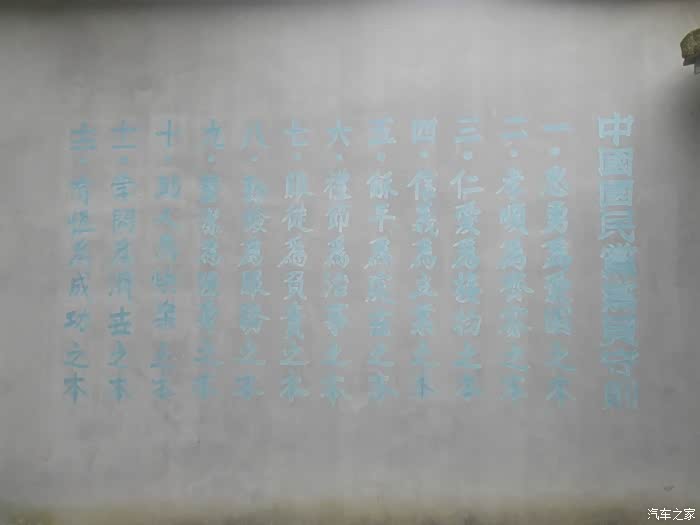 中國國民黨黨員守則
一·忠勇為愛國之本
二·孝順為齊家之本
三·仁愛為接物之本
四·信義為立業之本
五·龢平為處世之本
六·禮節為治事之本
七·服從為負責之本
八·勤儉為服務之本
九·整潔為強身之本
十·助人為快樂之本
十一·学問為濟世之本
十二·有恆為成功之本
汽车之家